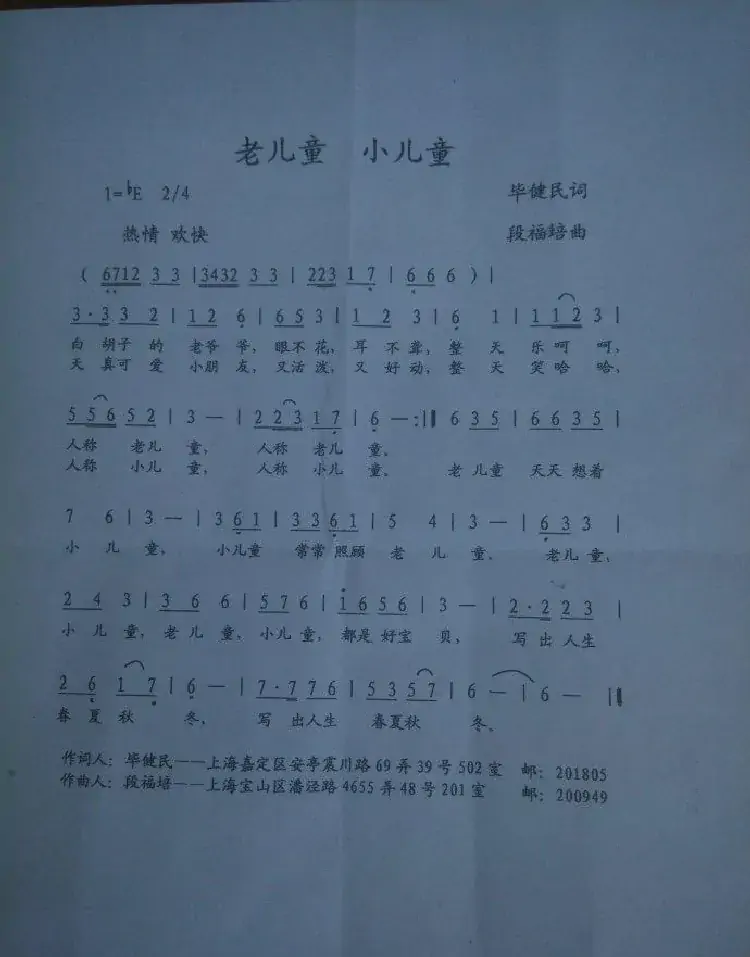 老儿童 小儿童
1=♭E 2/4 毕健民词
热情 欢快 段福培曲
( 6712 3 3 | 3432 3 3 | 223 1 7 | 6 6 6 ) |
3·3 3 2 | 1 2 6 | 6 5 3 | 1 2 3 | 6 1 | 1 1 2 3 |
白 胡子 的 老 爷 爷, 眼不 花, 耳 不 聋, 整 天 乐呵 呵,
天 真可 爱 小朋 友, 又活 泼, 又 好 动, 整 天 笑哈 哈,
5 5 6 5 2 | 3 — | 2 2 3 1 7 | 6 — :|| 6 3 5 | 6 6 3 5 |
人称 老儿 童, 人称 老儿 童。
人称 小儿 童, 人称 小儿 童。 老 儿童 天天 想着
7 6 | 3 — | 3 6 1 | 3 3 6 1 | 5 4 | 3 — | 6 3 3 |
小 儿 童, 小儿童 常常 照顾 老 儿 童。 老儿 童,
2 4 3 | 3 6 6 | 5 7 6 | 1 6 5 6 | 3 — | 2·2 2 3 |
小 儿 童, 老 儿 童, 小儿 童, 都是 好宝 贝, 写 出 人生
2 6 1 7 | 6 — | 7·7 7 6 | 5 3 5 7 | 6 — | 6 — ||
春 夏 秋 冬, 写 出人生 春夏秋 冬。
作词人: 毕健民——上海嘉定区安亭震川路 69 弄 39 号 502 室 邮: 201805
作曲人: 段福培——上海宝山区潘泾路 4655 弄 48 号 201 室 邮: 200949